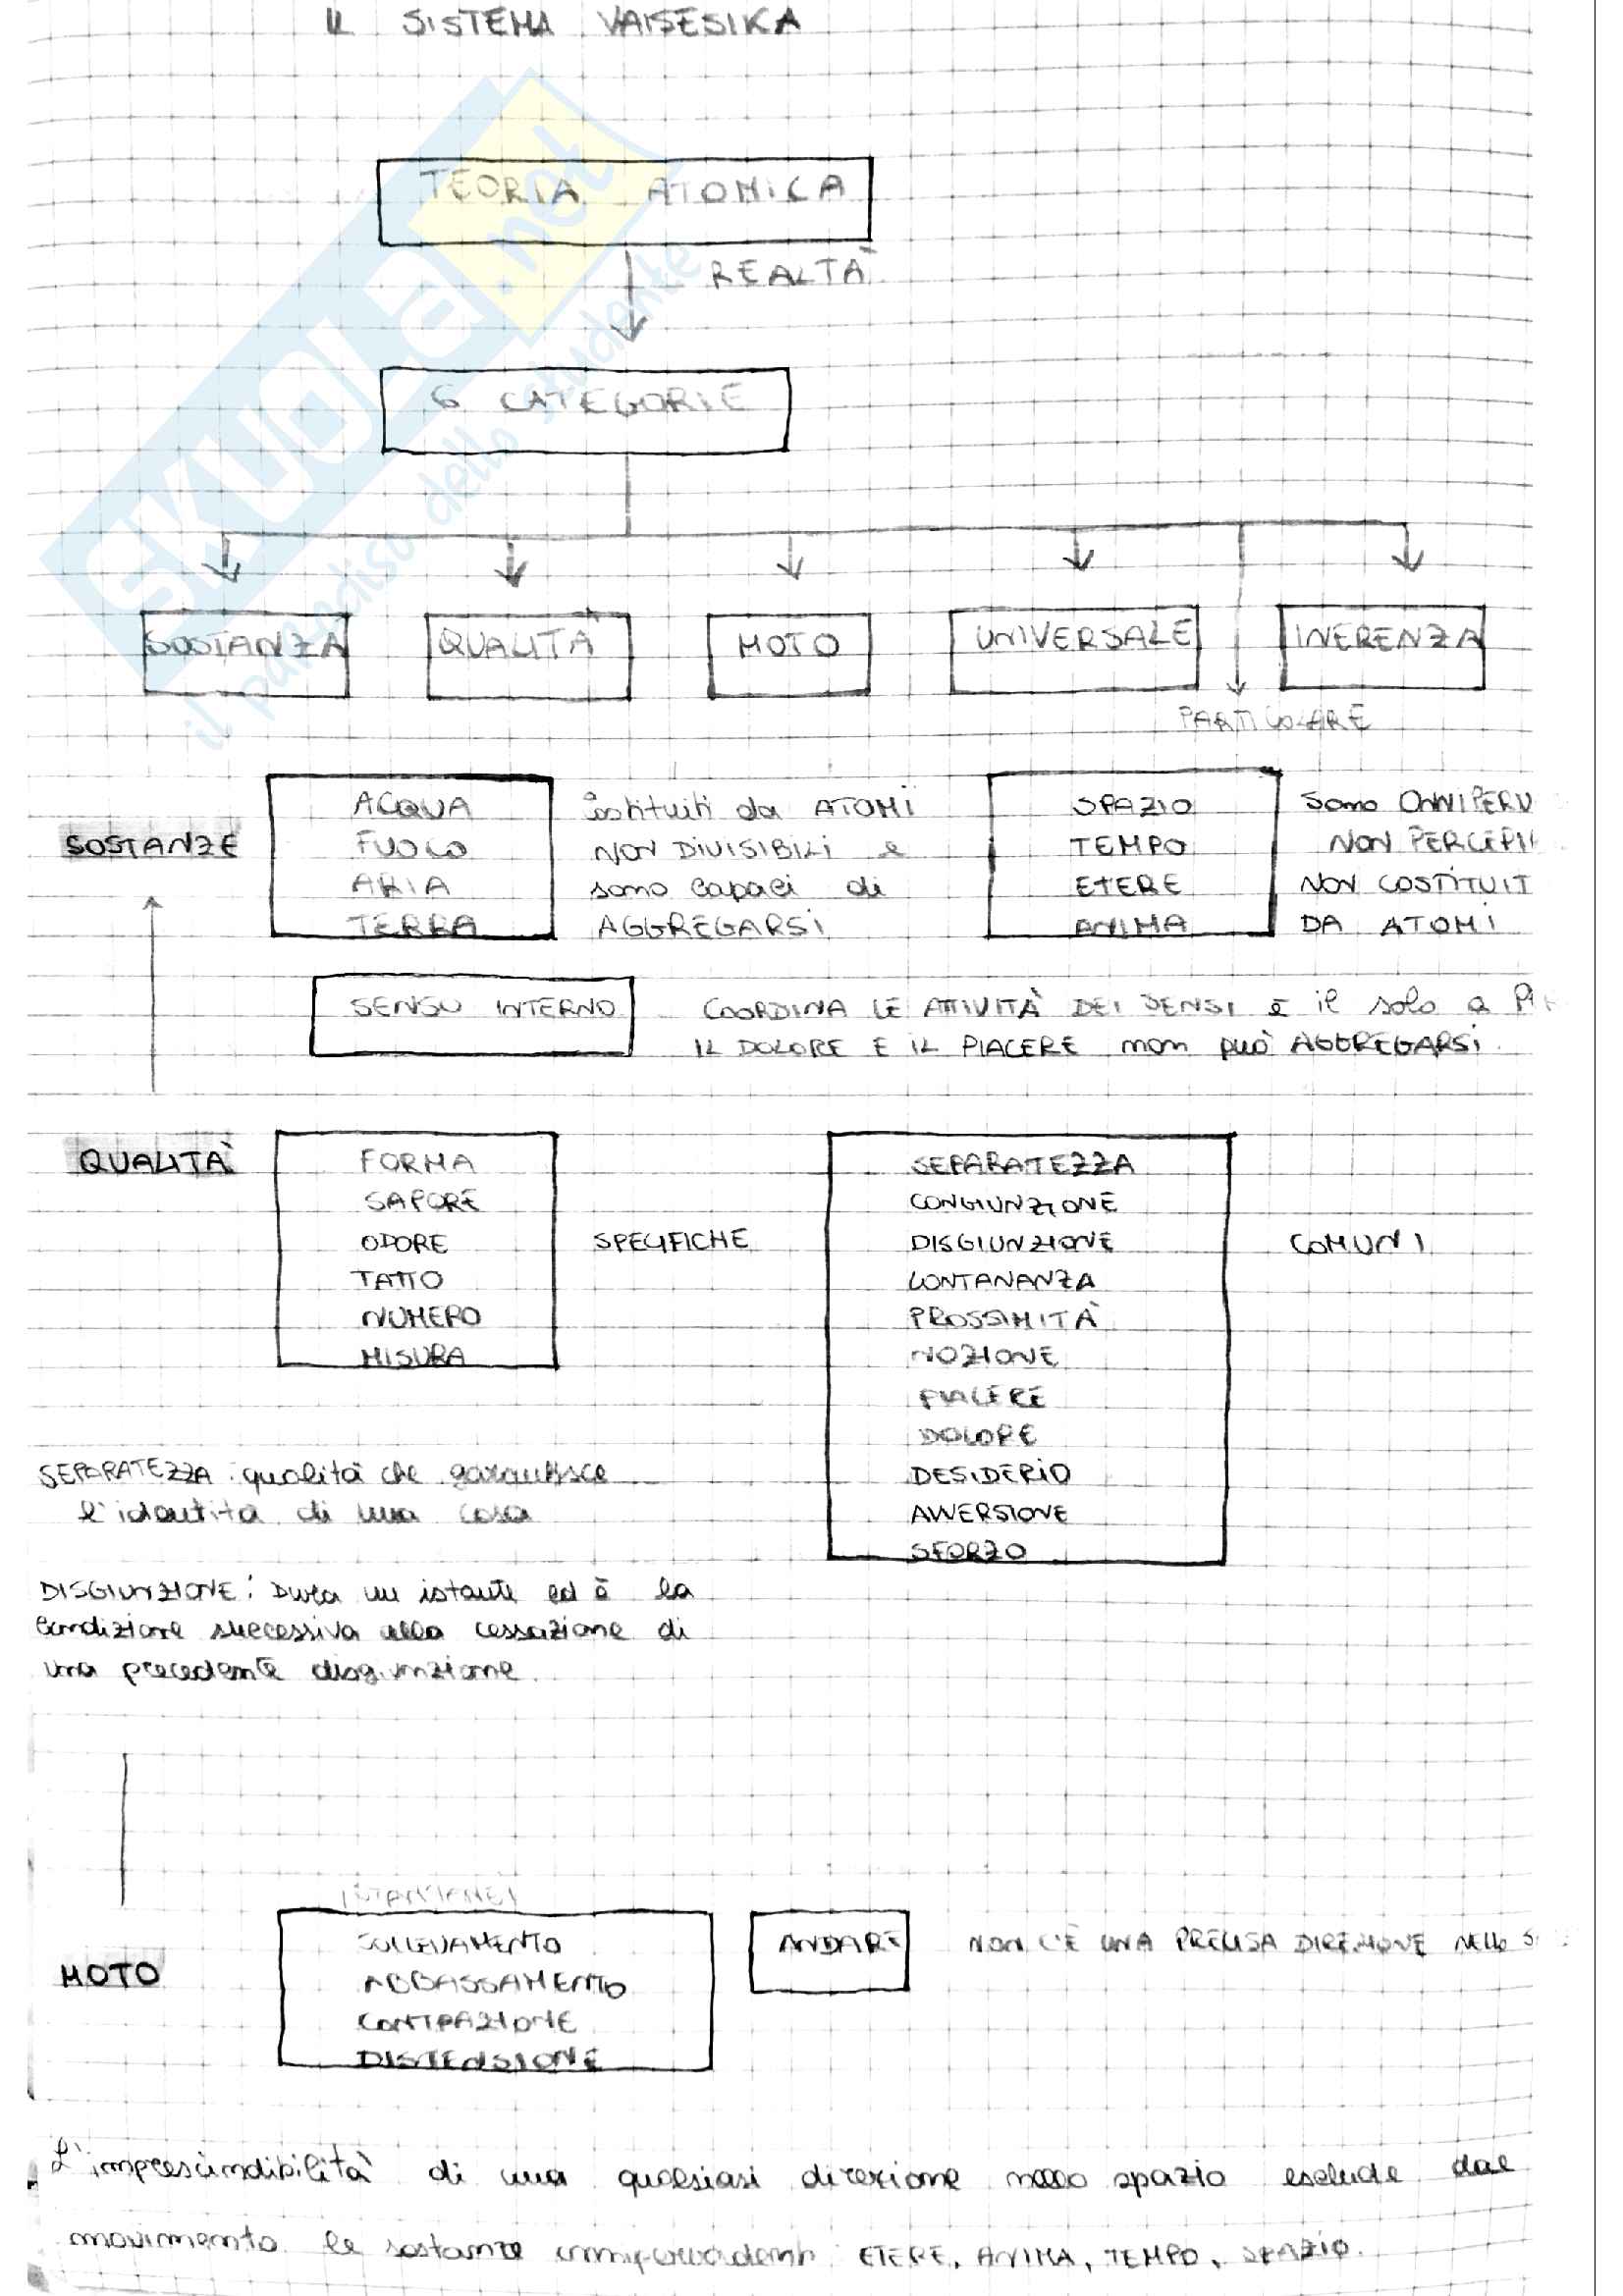 IL SISTEMA VAISESIKA
TEORIA ATOMICA
REALTÀ
6 CATEGORIE
SOSTANZA QUALITÀ MOTO UNIVERSALE INERENZA
PARTICOLARE
SOSTANZE
ACQUA
FUOCO
ARIA
TERRA
Costituiti da ATOMI
NON DIVISIBILI e
sono capaci di
AGGREGARSI
SPAZIO
TEMPO
ETERE
ANIMA
Sono ONNIPERV
NON PERCEPI
NON COSTITUIT
DA ATOMI
SENSO INTERNO
COORDINA LE ATTIVITÀ DEI SENSI è il solo a
IL DOLORE E IL PIACERE non può AGGREGARSI.
QUALITÀ
FORMA
SAPORE
ODORE
TATTO
NUMERO
MISURA
SPECIFICHE
SEPARATEZZA
CONGIUNZIONE
DISGIUNZIONE
LONTANANZA
PROSSIMITÀ
NOZIONE
PIACERE
DOLORE
DESIDERIO
AVVERSIONE
SFORZO
COMUNI
SEPARATEZZA: qualità che garantisce
l'identità di una cosa
DISGIUNZIONE: Dura un istante ed è la
condizione successiva alla cessazione di
una precedente disgiunzione.
ISTANTANEI
SOLLEVAMENTO
ABBASSAMENTO
CONTRAZIONE
DISTENSIONE
MOTO
ANDARE
NON C'È UNA PRECISA DIREZIONE NELLO S
L'imprescindibilità di una qualsiasi direzione nello spazio esclude dal
movimento le sostanze onnipervadenti ETERE, ANIMA, TEMPO, SPAZIO.
SKUOLA.net
il paradiso dello studente